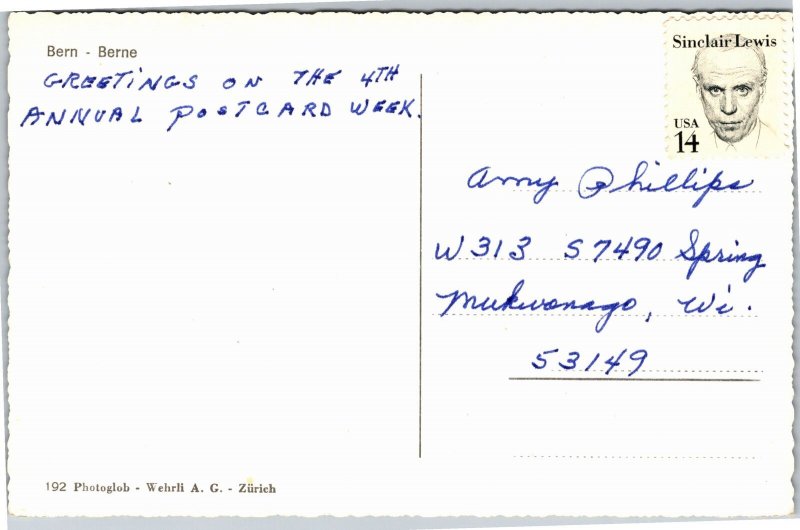 Bern - Berne
GREETINGS ON THE 4TH
ANNUAL POSTCARD WEEK.
Sinclair Lewis
USA
14
Amy Phillips
W313 S7490 Spring
Mukwonago, Wi.
53149
192 Photoglob - Wehrli A. G. - Zürich